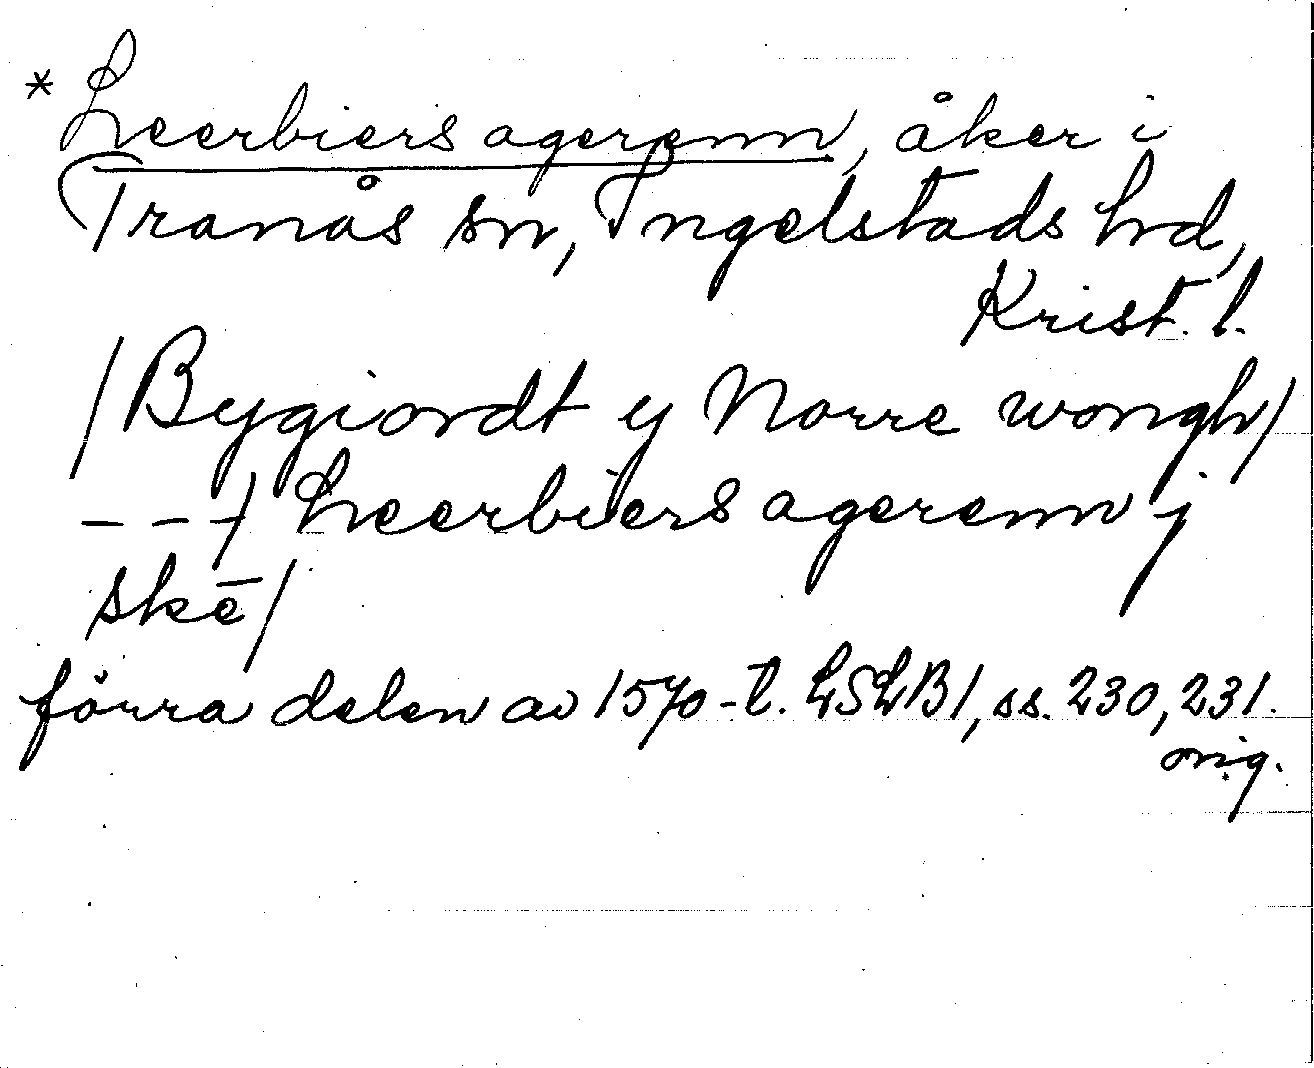 * Leerbiers agerenn, åker i
Tranås sn, Ingelstads hd,
Krist. l.
/Bygiordt y Norre wongh/
---/ Leerbiers agerenn j
skē/
förra delen av 1570-t. LSLB1, ss. 230, 231.
orig.